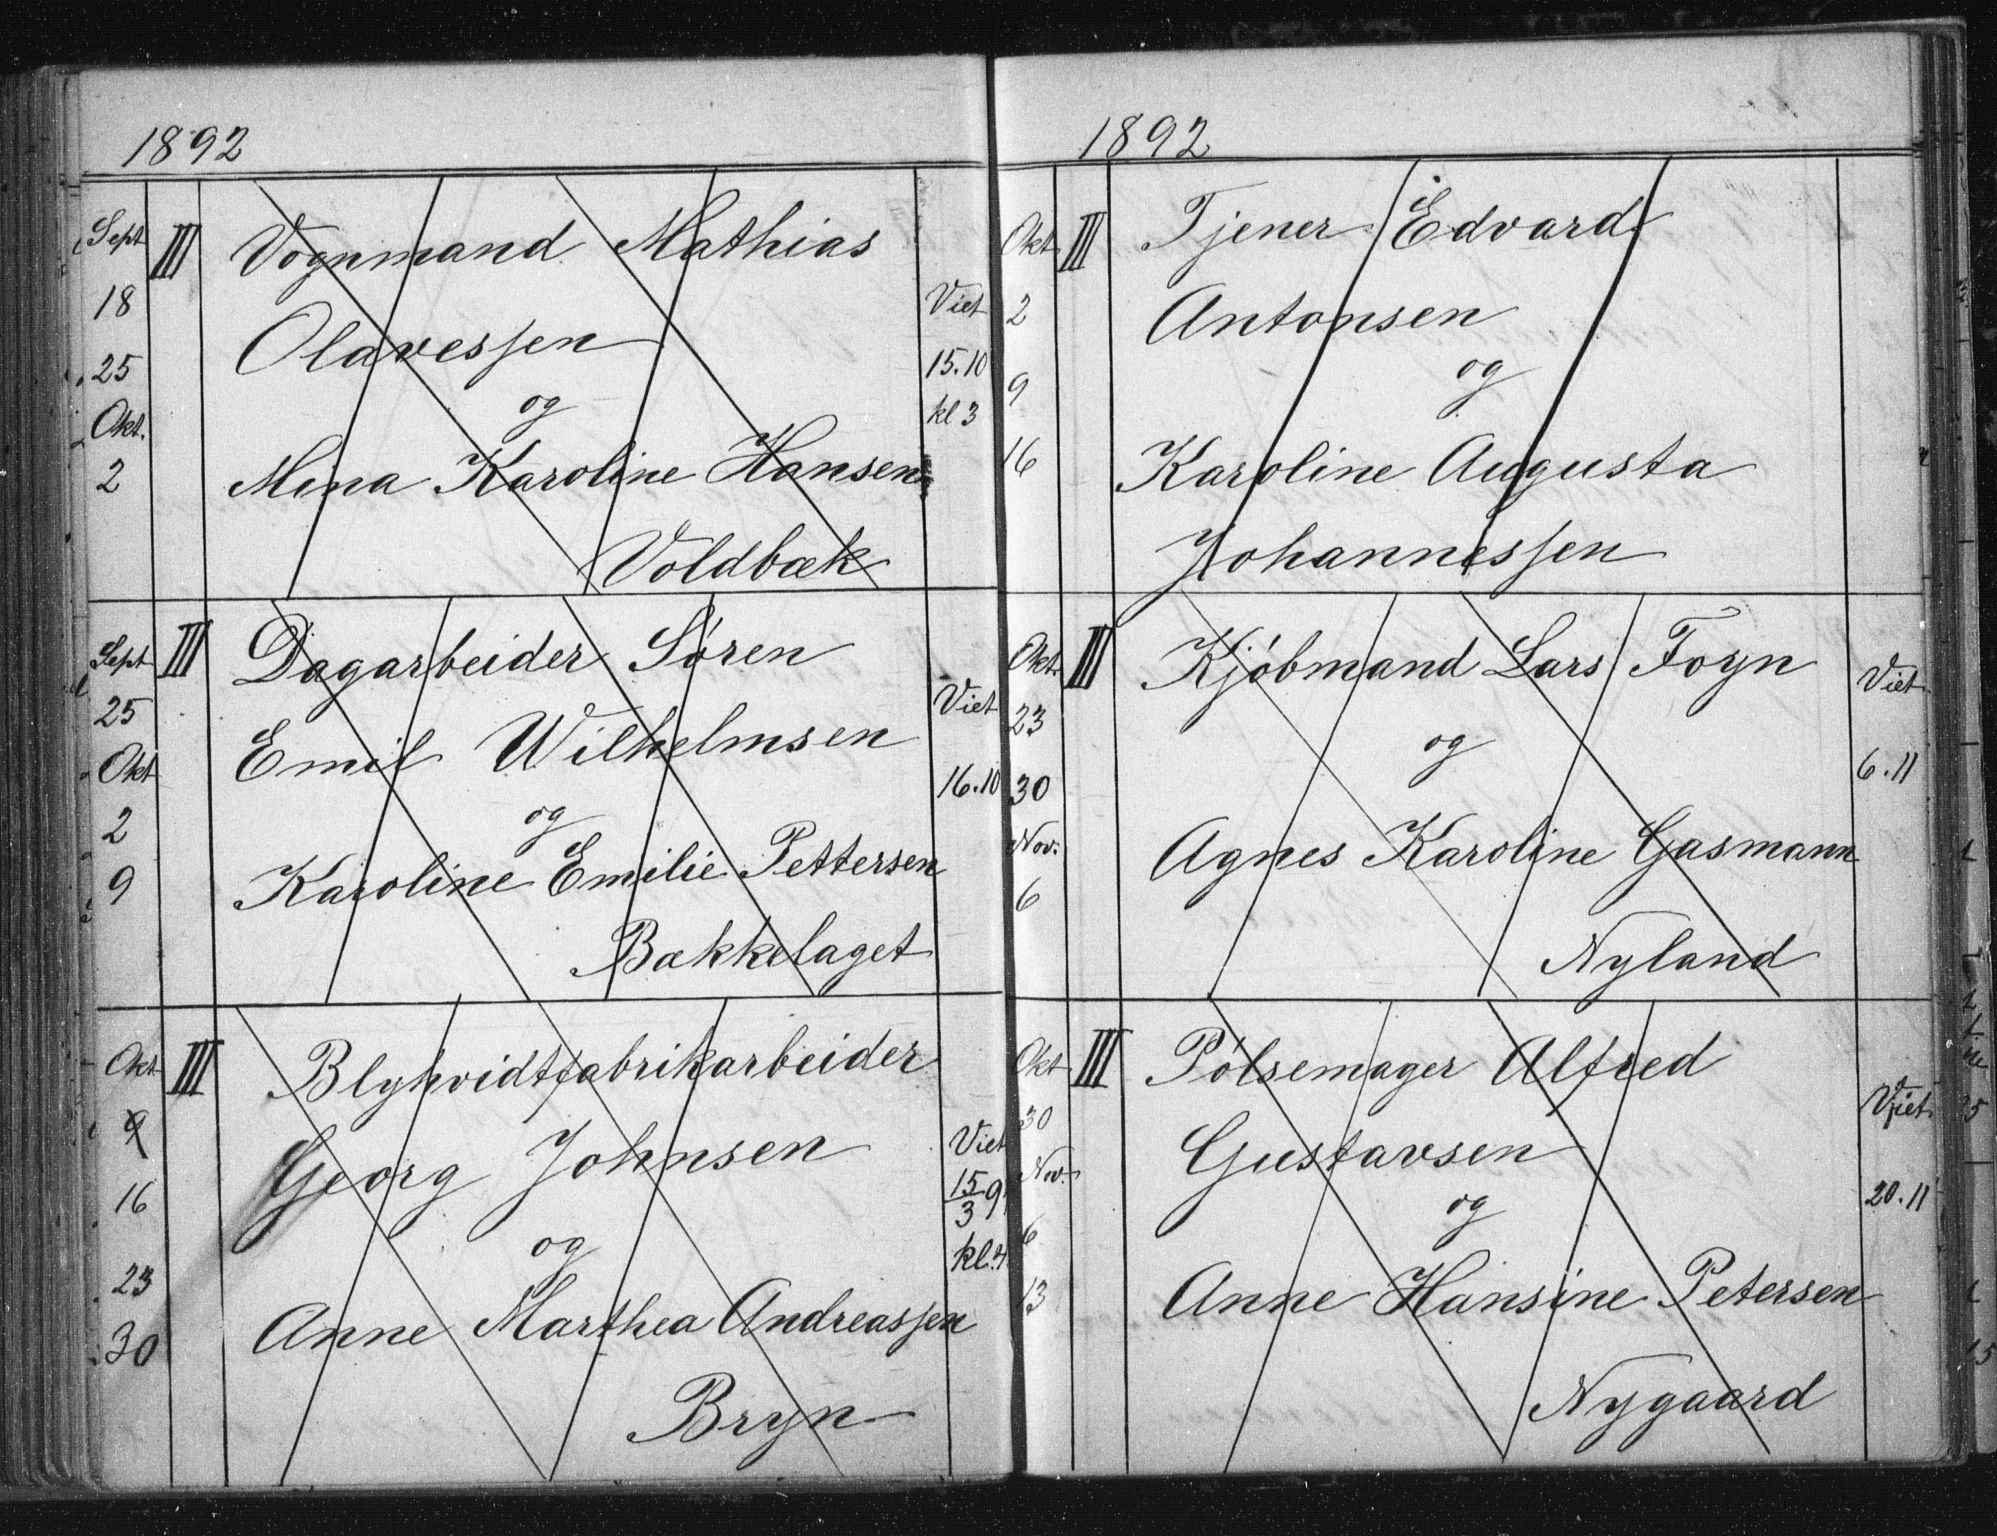 1892
Sept
18
25
Okt.
2
III
Vognmand Mathias
Olavessen
og
Mina Karoline Hansen
Voldbæk
Viet
15.10
kl 3
Sept
25
Okt
2
9
III
Dagarbeider Søren
Emil Wilhelmsen
og
Karoline Emilie Pettersen
Bækkelaget
Viet
16.10
Okt
9
16
23
30
III
Blyhvidtfabrikarbeider
Georg Johnsen
og
Anne Marthea Andreassen
Bryn
Viet
15/3 9
kl. 4
1892
Okt
2
9
16
III
Tjener Edvard
Antonsen
og
Karoline Augusta
Johannessen
Okt
23
30
Nov.
6
III
Kjøbmand Lars Foyn
og
Agnes Karoline Gasmann
Nyland
Viet
6.11
Okt
30
Nov.
6
13
III
Pølsemager Alfred
Gustavsen
og
Anne Hansine Petersen
Nygaard
Viet
20.11